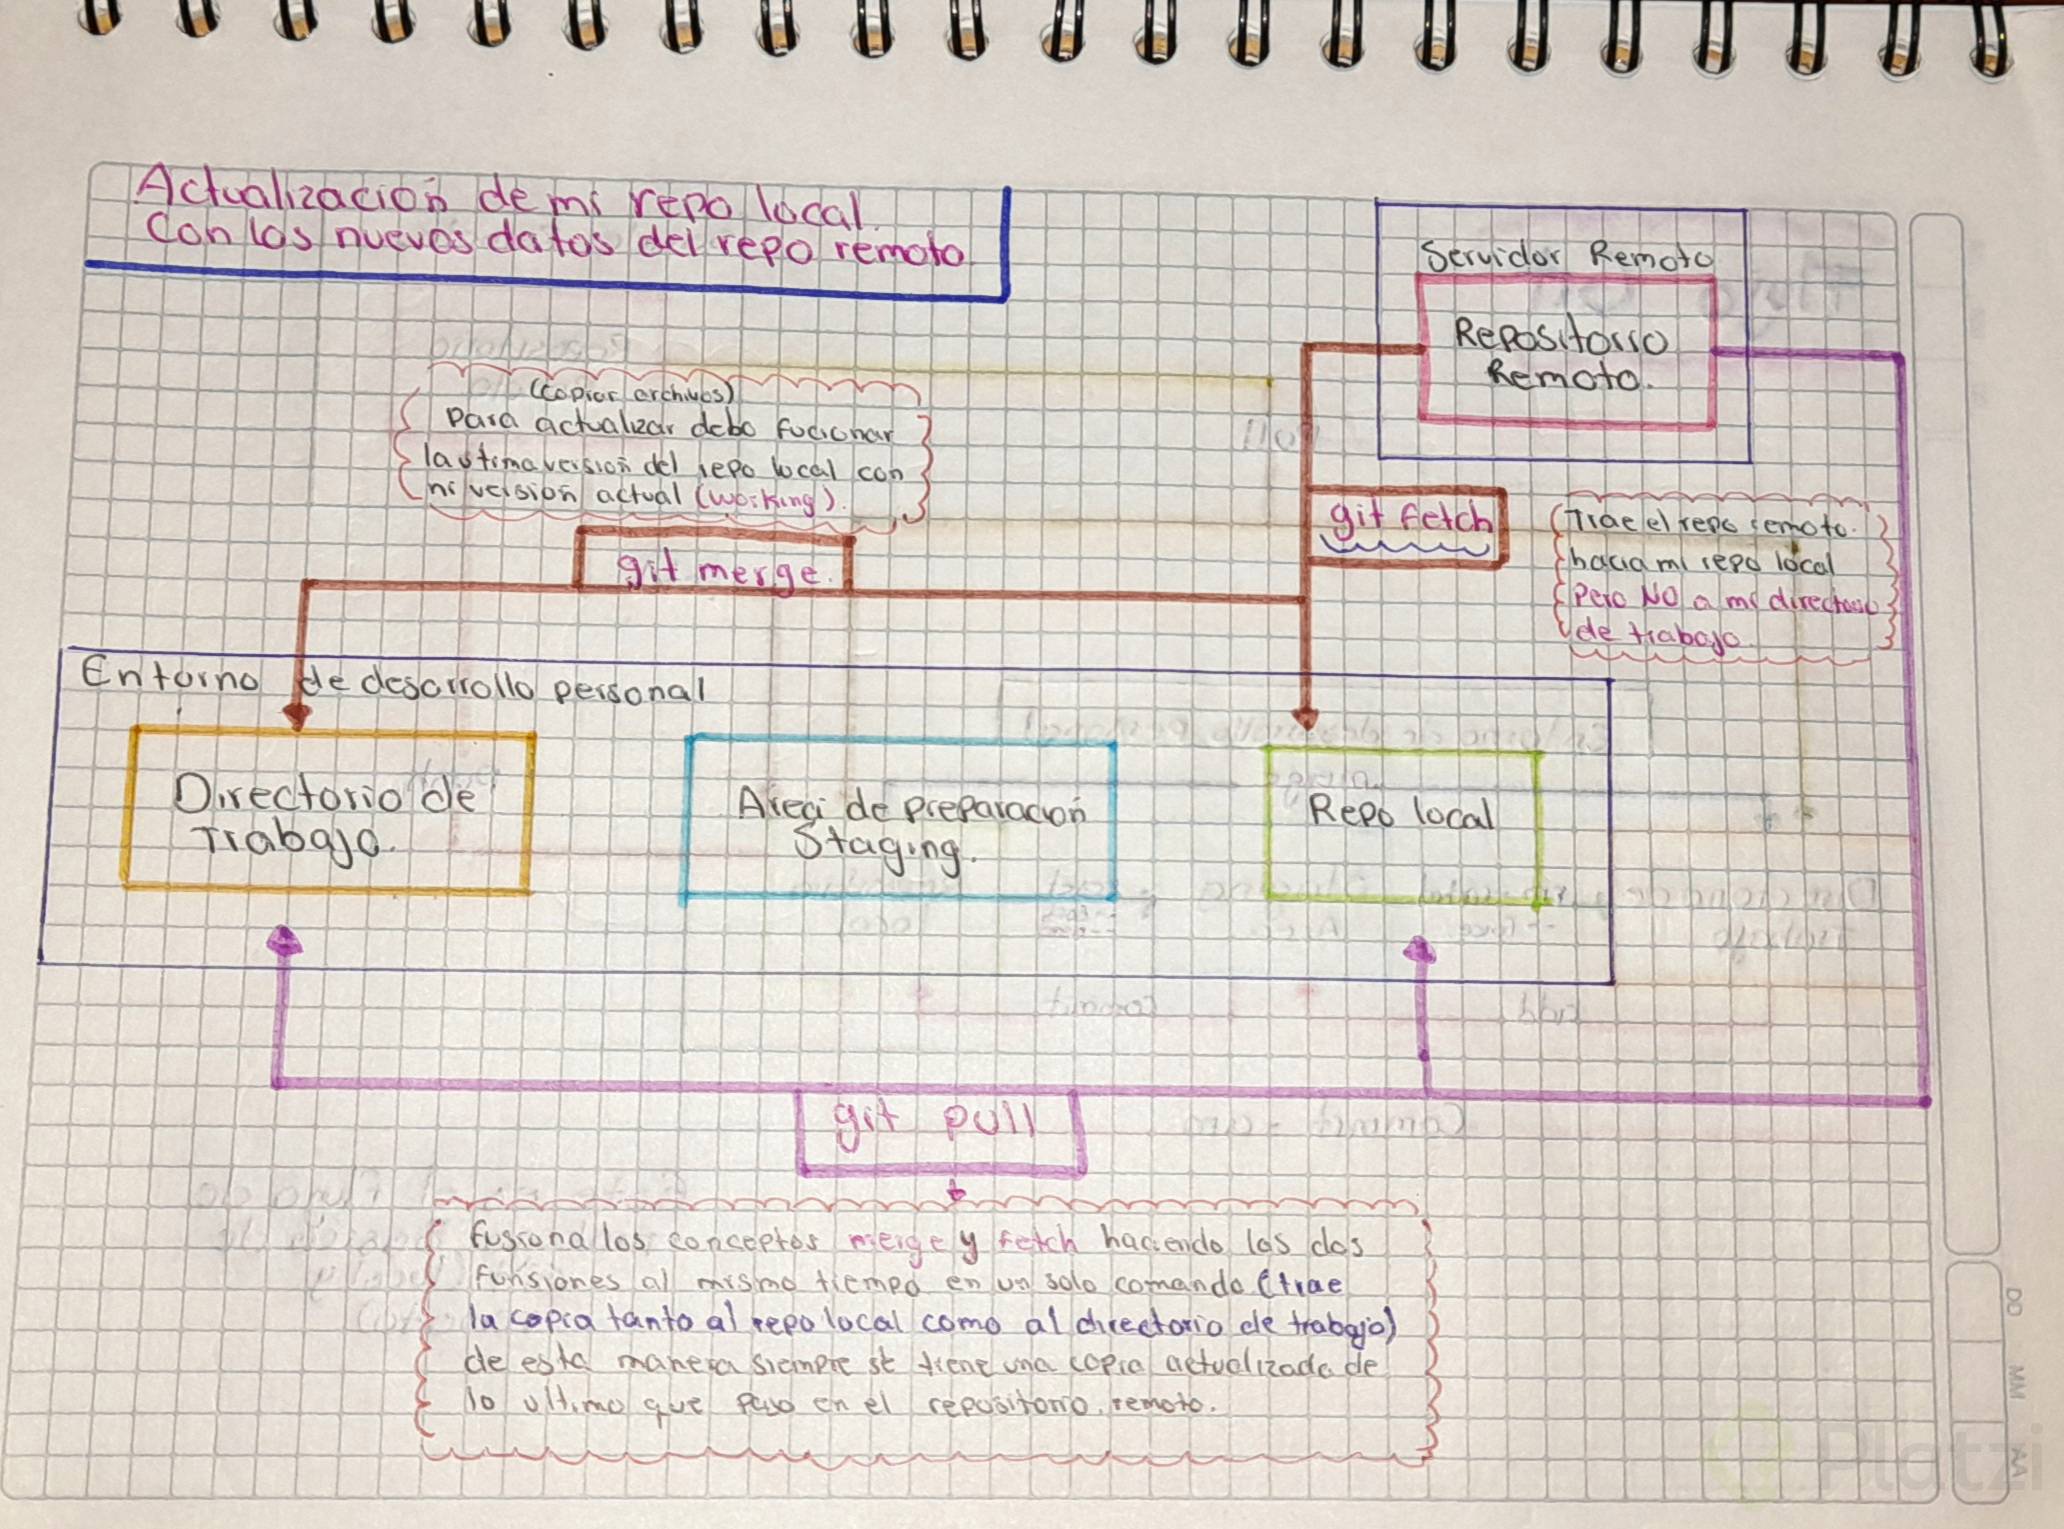 Actualización de mi repo local
Con los nuevos datos del repo remoto
Servidor Remoto
Repositorio
Remoto.
(Copiar archivos)
Para actualizar debo fucionar
la utima version del repo local con
mi version actual (working).
git merge.
git fetch
Trae el repo remoto
hacia mi repo local
Pero NO a mi directorio
de trabajo
Entorno de desarrollo personal
Directorio de
Trabajo.
Area de preparación
Staging.
Repo local
git pull
fusiona los conceptos merge y fetch haciendo las dos
funsiones al mismo tiempo en un solo comando (trae
la copia tanto al repo local como al directorio de trabajo)
de esta manera siempre se tiene una copia actualizada de
lo ultimo que paso en el repositorio remoto.
DD
MM
AA
Platzi